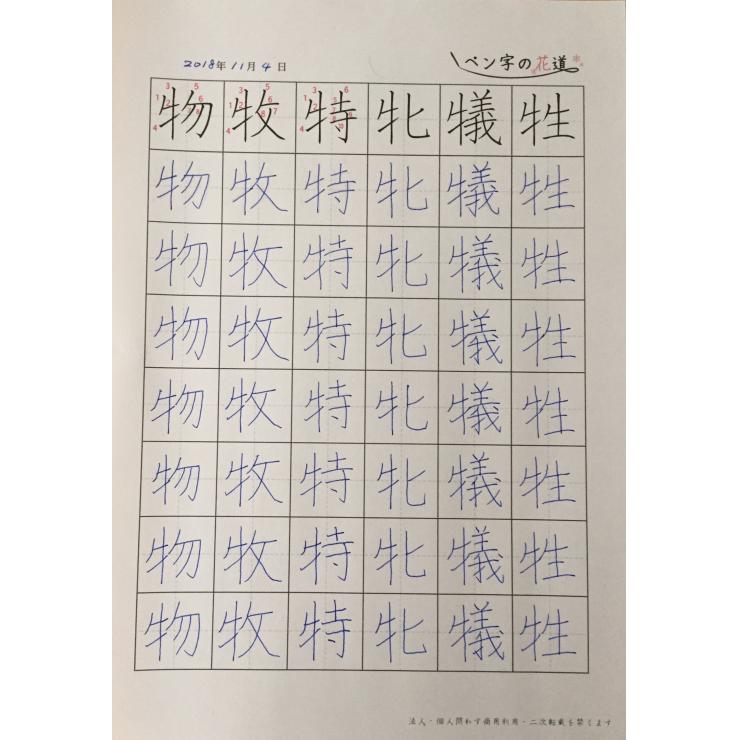 2018年11月4日
ペン字の花道
物牧特牝犠牲
物牧特牝犠牲
物牧特牝犠牲
物牧特牝犠牲
物牧特牝犠牲
物牧特牝犠牲
物牧特牝犠牲
物牧特牝犠牲
法人・個人問わず商用利用・二次転載を禁じます